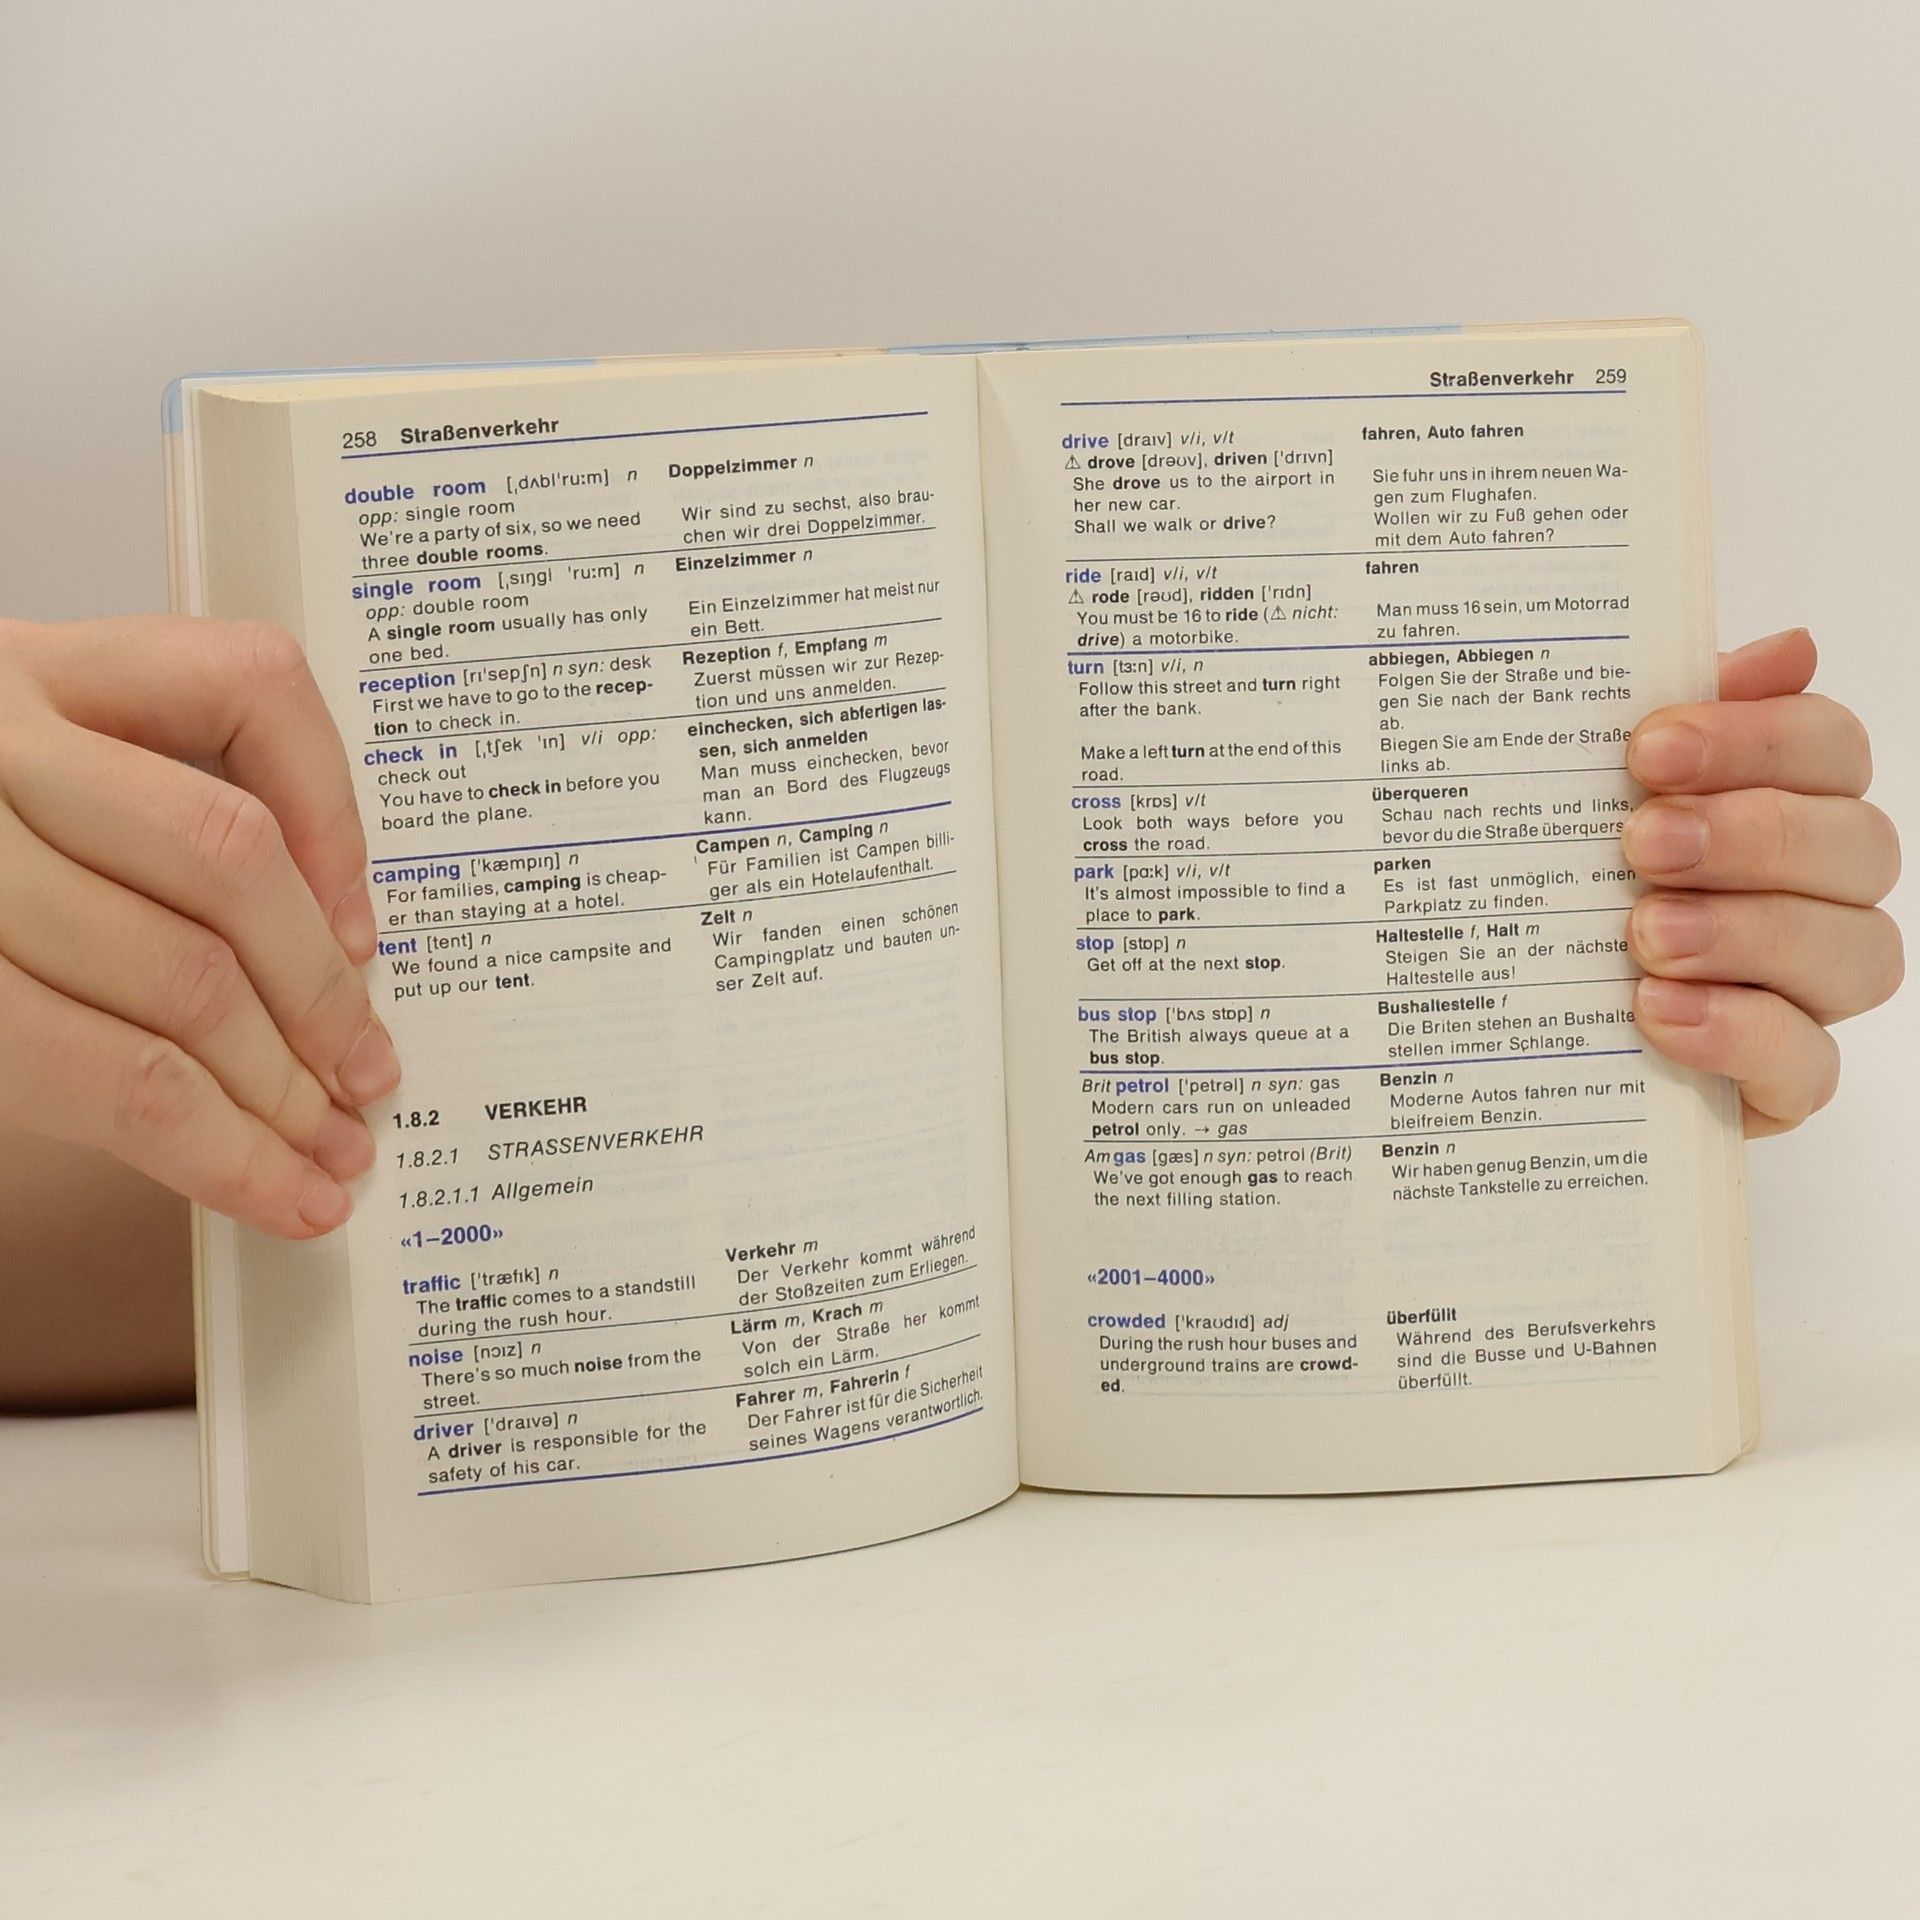 258 Straßenverkehr
double room [ˌdʌblˈruːm] n
opp: single room
We're a party of six, so we need
three double rooms.
Doppelzimmer n
Wir sind zu sechst, also brau-
chen wir drei Doppelzimmer.
single room [ˌsɪŋgl ˈruːm] n
opp: double room
A single room usually has only
one bed.
Einzelzimmer n
Ein Einzelzimmer hat meist nur
ein Bett.
reception [rɪˈsepʃn] n syn: desk
First we have to go to the recep-
tion to check in.
Rezeption f, Empfang m
Zuerst müssen wir zur Rezep-
tion und uns anmelden.
check in [ˌtʃek ˈɪn] v/i opp:
check out
You have to check in before you
board the plane.
einchecken, sich abfertigen las-
sen, sich anmelden
Man muss einchecken, bevor
man an Bord des Flugzeugs
kann.
camping [ˈkæmpɪŋ] n
For families, camping is cheap-
er than staying at a hotel.
Campen n, Camping n
Für Familien ist Campen billi-
ger als ein Hotelaufenthalt.
tent [tent] n
We found a nice campsite and
put up our tent.
Zelt n
Wir fanden einen schönen
Campingplatz und bauten un-
ser Zelt auf.
1.8.2 VERKEHR
1.8.2.1 STRASSENVERKEHR
1.8.2.1.1 Allgemein
«1–2000»
traffic [ˈtræfɪk] n
The traffic comes to a standstill
during the rush hour.
Verkehr m
Der Verkehr kommt während
der Stoßzeiten zum Erliegen.
noise [nɔɪz] n
There's so much noise from the
street.
Lärm m, Krach m
Von der Straße her kommt
solch ein Lärm.
driver [ˈdraɪvə] n
A driver is responsible for the
safety of his car.
Fahrer m, Fahrerin f
Der Fahrer ist für die Sicherheit
seines Wagens verantwortlich.
Straßenverkehr 259
drive [draɪv] v/i, v/t
⚠ drove [drəʊv], driven [ˈdrɪvn]
She drove us to the airport in
her new car.
Shall we walk or drive?
fahren, Auto fahren
Sie fuhr uns in ihrem neuen Wa-
gen zum Flughafen.
Wollen wir zu Fuß gehen oder
mit dem Auto fahren?
ride [raɪd] v/i, v/t
⚠ rode [rəʊd], ridden [ˈrɪdn]
You must be 16 to ride (⚠ nicht:
drive) a motorbike.
fahren
Man muss 16 sein, um Motorrad
zu fahren.
turn [tɜːn] v/i, n
Follow this street and turn right
after the bank.
Make a left turn at the end of this
road.
abbiegen, Abbiegen n
Folgen Sie der Straße und bie-
gen Sie nach der Bank rechts
ab.
Biegen Sie am Ende der Straße
links ab.
cross [krɒs] v/t
Look both ways before you
cross the road.
überqueren
Schau nach rechts und links,
bevor du die Straße überquers
park [pɑːk] v/i, v/t
It's almost impossible to find a
place to park.
parken
Es ist fast unmöglich, einen
Parkplatz zu finden.
stop [stɒp] n
Get off at the next stop.
Haltestelle f, Halt m
Steigen Sie an der nächste
Haltestelle aus!
bus stop [ˈbʌs stɒp] n
The British always queue at a
bus stop.
Bushaltestelle f
Die Briten stehen an Bushalte
stellen immer Schlange.
Brit petrol [ˈpetrəl] n syn: gas
Modern cars run on unleaded
petrol only. → gas
Benzin n
Moderne Autos fahren nur mit
bleifreiem Benzin.
Am gas [gæs] n syn: petrol (Brit)
We've got enough gas to reach
the next filling station.
Benzin n
Wir haben genug Benzin, um die
nächste Tankstelle zu erreichen.
«2001–4000»
crowded [ˈkraʊdɪd] adj
During the rush hour buses and
underground trains are crowd-
ed.
überfüllt
Während des Berufsverkehrs
sind die Busse und U-Bahnen
überfüllt.